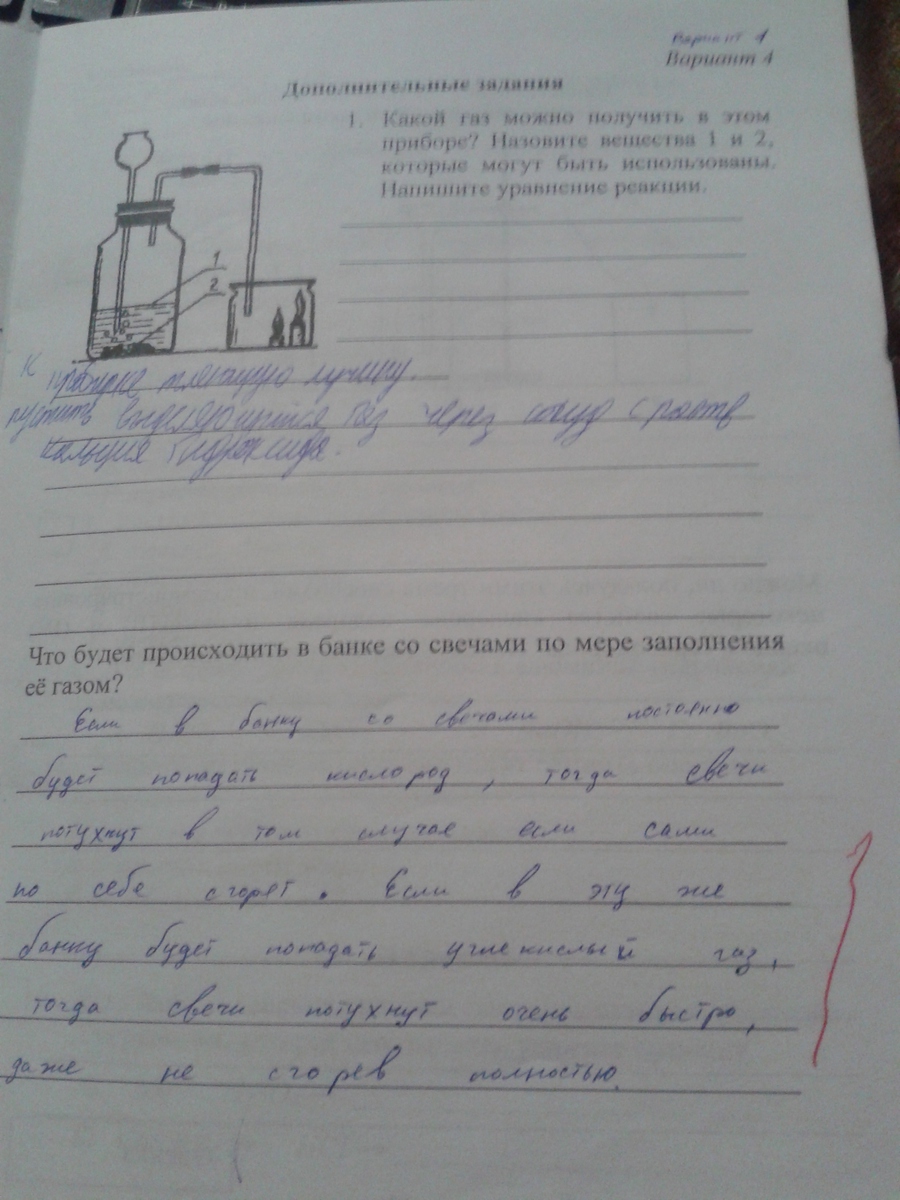 Вариант 1
Вариант 4
Дополнительные задания
1. Какой газ можно получить в этом
приборе? Назовите вещества 1 и 2,
которые могут быть использованы.
Напишите уравнение реакции.
1
2
К пробирке тлеющую лучину.
пустить выделяющийся газ через сосуд с раств
кальция гидроксида.
Что будет происходить в банке со свечами по мере заполнения
её газом?
Если в банку со свечами постоянно
будет попадать кислород, тогда свечи
потухнут в том случае если сами
по себе сгорят. Если в эту же
банку будет попадать углекислый газ,
тогда свечи потухнут очень быстро,
даже не сгорев полностью.